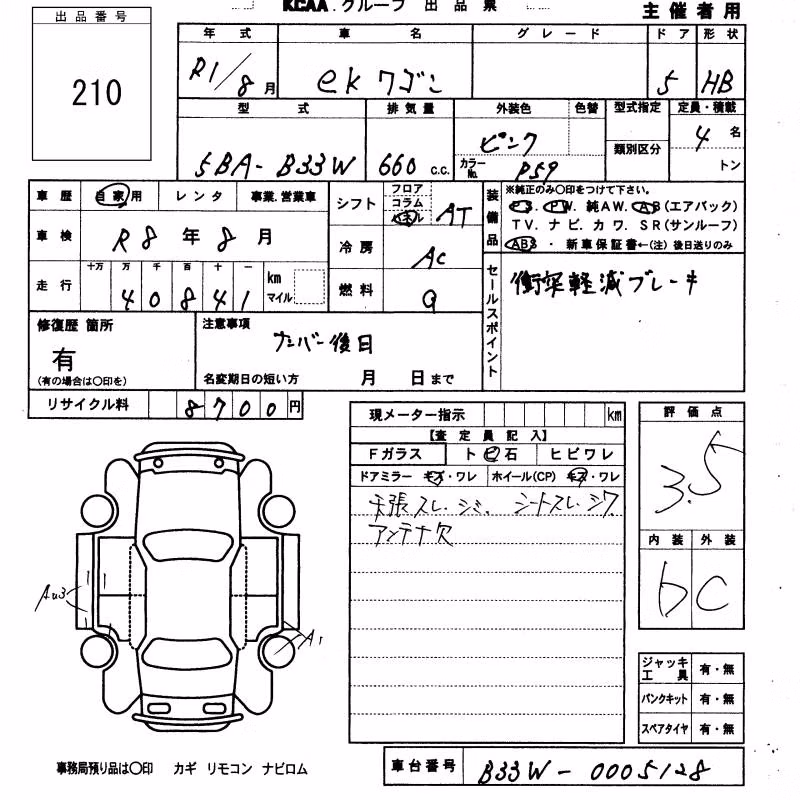 KCAA.グループ 出品票
主催者用
出品番号
210
年式 車名 グレード ドア 形状
R1/8月 ekワゴン 5 HB
型式 排気量 外装色 色替 型式指定 定員・積載
5BA-B33W 660 c.c. ピンク カラーNo. P59 類別区分 4 名 トン
車歴 自家用 レンタ 事業.営業車
車検 R8年8月
走行 十万 万 千 百 十 一 40841 km マイル
シフト フロア コラム パネル AT
冷房 AC
燃料 G
装備品 ※純正のみ〇印をつけて下さい。
P.S. P.W. 純AW. AB(エアバック)
TV. ナビ. カワ. SR(サンルーフ)
ABS ・ 新車保証書←(注) 後日送りのみ
セールスポイント 衝突軽減ブレーキ
修復歴 箇所
有
(有の場合は〇印を)
注意事項
ナンバー後日
名変期日の短い方 月 日まで
リサイクル料 8700円
現メーター指示 km
【査定員記入】
Fガラス ト ビ 石 ヒビワレ
ドアミラー キズ・ワレ ホイール(CP) キズ・ワレ
天張スレ.シミ. シートスレ.シワ
アンテナ欠
評価点
3.5
内装 外装
b C
Au3
A1
ジャッキ工具 有・無
パンクキット 有・無
スペアタイヤ 有・無
事務局預り品は〇印 カギ リモコン ナビロム
車台番号 B33W-0005128